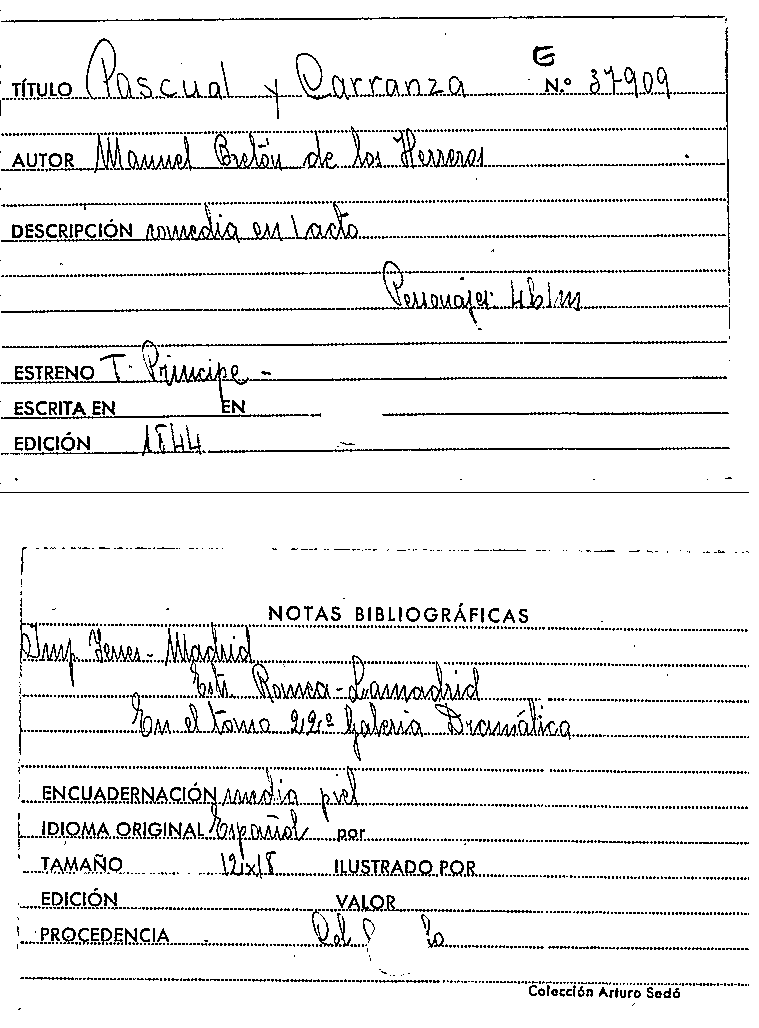 G
TÍTULO Pascual y Carranza N.º 37909
AUTOR Manuel Bretón de los Herreros
DESCRIPCIÓN comedia en 1 acto
Personajes: 4h1m
ESTRENO T. Principe -
ESCRITA EN EN
EDICIÓN 1844
NOTAS BIBLIOGRÁFICAS
Imp Yenes - Madrid
Estr. Romea - Lamadrid
En el tomo 22º Galeria Dramática
ENCUADERNACIÓN media piel
IDIOMA ORIGINAL Español por
TAMAÑO 12x18 ILUSTRADO POR
EDICIÓN VALOR
PROCEDENCIA
Colección Arturo Sedó